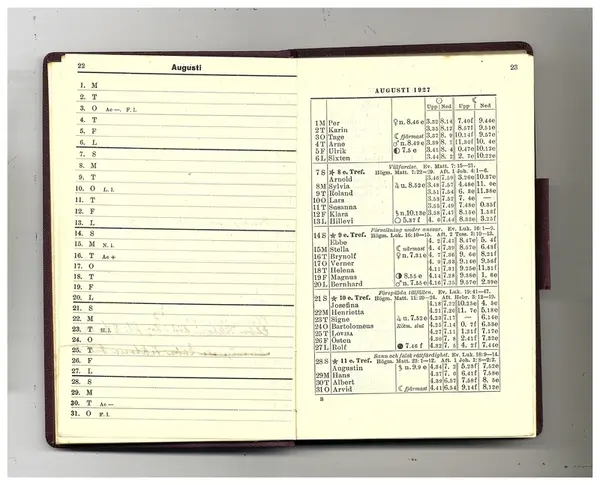 22
Augusti
1. M
2. T
3. O Ac —. F. l.
4. T
5. F
6. L
7. S
8. M
9. T
10. O L. l.
11. T
12. F
13. L
14. S
15. M N. l.
16. T Ac +
17. O
18. T
19. F
20. L
21. S
22. M
23. T Sl. l.
24. O
25. T
26. F
27. L
28. S
29. M
30. T Ac —
31. O F. l.
23
AUGUSTI 1927
Upp Ned Upp Ned
1 M Per ♀ n. 8.46 e 3.32 8.14 7.40f 9.44e
2 T Karin 3.35 8.12 8.57f 9.51e
3 O Tage ☾ fjärmast 3.37 8. 9 10.14f 9.57e
4 T Arne ♂ n. 8.49 e 3.39 8. 7 11.30f 10. 4e
5 F Ulrik 7.5 e 3.41 8. 4 0.47e 10.12e
6 L Sixten 3.44 8. 2 2. 7e 10.22e
Villfarelse. Ev. Matt. 7: 15—21.
7 S ★ 8 e. Tref. Högm. Matt. 7: 22—29. Aft. 1 Joh. 4: 1—6.
Arnold 3.46 7.59 3.26e 10.37e
8 M Sylvia u. 8.52 e 3.48 7.57 4.48e 11. 0e
9 T Roland 3.51 7.54 6. 3e 11.38e
10 O Lars 3.53 7.52 7. 4e —
11 T Susanna 3.55 7.49 7.48e 0.35f
12 F Klara ♄ n. 10.13e 3.58 7.47 8.15e 1.53f
13 L Hillevi 5.37 f 4. 0 7.44 8.33e 3.25f
Förvaltning under ansvar. Ev. Luk. 16: 1—9.
14 S ★ 9 e. Tref. Högm. Luk. 16: 10—15. Aft. 2 Tess. 3: 10—13.
Ebbe 4. 2 7.42 8.47e 5. 4f
15 M Stella ☾ närmast 4. 4 7.39 8.57e 6.43f
16 T Brynolf ♀ n. 7.31 e 4. 7 7.36 9. 6e 8.21f
17 O Verner 4. 9 7.33 9.14e 9.56f
18 T Helena 4.11 7.31 9.25e 11.31f
19 F Magnus 8.55 e 4.13 7.28 9.38e 1. 6e
20 L Bernhard ♂ n. 7.55 e 4.16 7.25 9.57e 2.39e
Förspillda tillfällen. Ev. Luk. 19: 41—47.
21 S ★ 10 e. Tref. Högm. Matt. 11: 20—24. Aft. Hebr. 3: 12—19.
Josefina 4.18 7.22 10.25e 4. 5e
22 M Henrietta 4.21 7.20 11. 7e 5.18e
23 T Signe u. 7.52 e 4.23 7.17 — 6.10e
24 O Bartolomeus Rötm. slut 4.25 7.14 0. 7f 6.33e
25 T Lovisa 4.27 7.11 1.21f 7.17e
26 F Östen 4.30 7. 8 2.41f 7.32e
27 L Rolf 7.46 f 4.32 7. 5 4. 2f 7.44e
Sann och falsk rättfärdighet. Ev. Luk. 18: 9—14.
28 S ★ 11 e. Tref. Högm. Matt. 23: 1—12. Aft. 1 Joh. 1: 8—2: 2.
Augustin n. 9.9 e 4.34 7. 2 5.25f 7.52e
29 M Hans 4.37 7. 0 6.41f 7.59e
30 T Albert 4.39 6.57 7.58f 8. 5e
31 O Arvid ☾ fjärmast 4.41 6.54 9.14f 8.12e